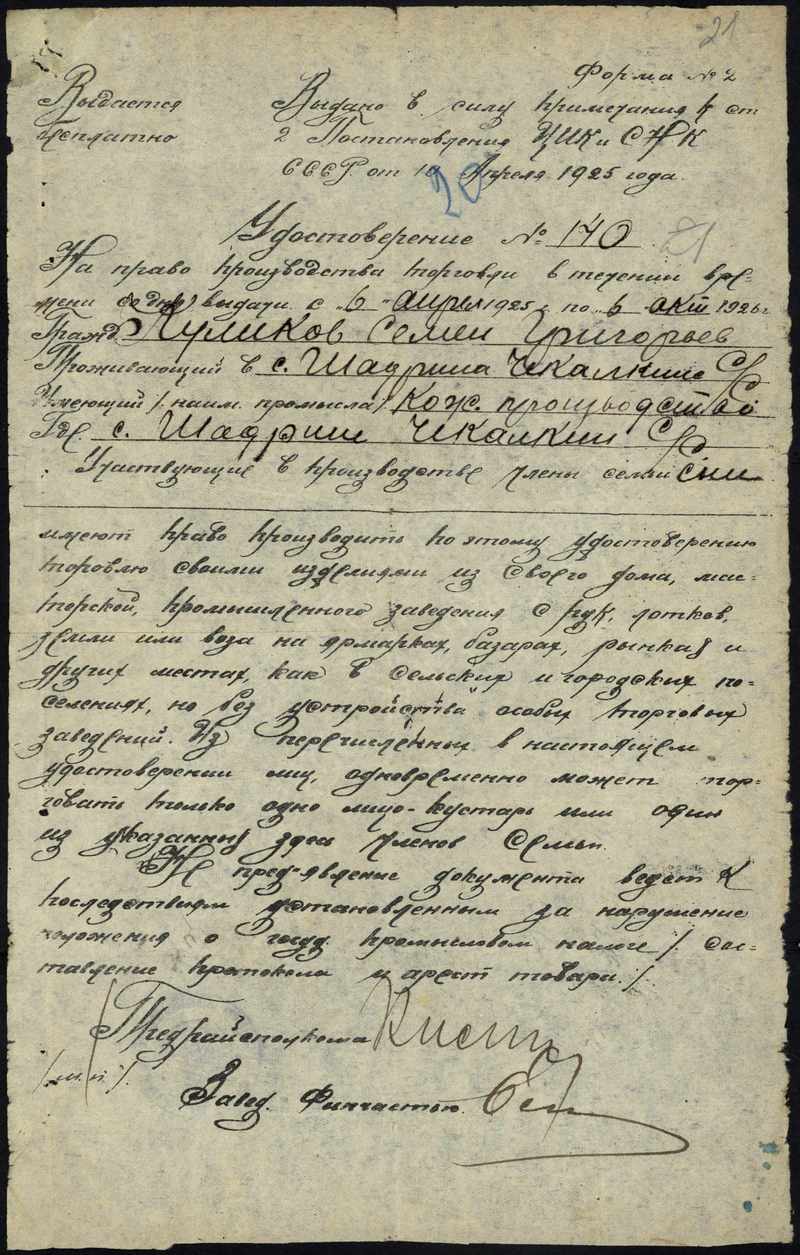 21
Форма № 2
Выдается бесплатно
Выдано в силу примечания к ст
2 Постановления ЦИК и СНК
СССР. от 10 Апреля 1925 года.
20
Удостоверение № 140 21
На право производства торговли в течении вре-
мени со дня выдачи с 6 апрел 1925 г по 6 окт 1926 г
Гражд. Куликов Семен Григорьев
Проживающий в с. Шадрина Чекалкине С/С
Имеющий /наим. промысла/ Кож. производство
Где с. Шадрин Чекалкин С/С
Участвующие в производстве члены семьи Сын
имеют право производить по этому удостоверению
торговлю своими изделиями из своего дома, мас-
торской, промышленного заведения с рук, лотков,
земли или воза на ярмарках, базарах, рынках и
других местах, как в сельских и городских по-
селениях, но без устройства особых торговых
заведений. Из перечисленных в настоящем
удостоверении лиц, одновременно может тор-
говать только одно лицо-кустарь или один
из указанных здесь членов семьи.
Не пред'явление документа ведет к
последствиям установленным за нарушение
положения о госуд. промысловом налоге /сос-
тавление протокола и арест товара./
Предрайисполкома
/м.п/.
Завед. Финчастью